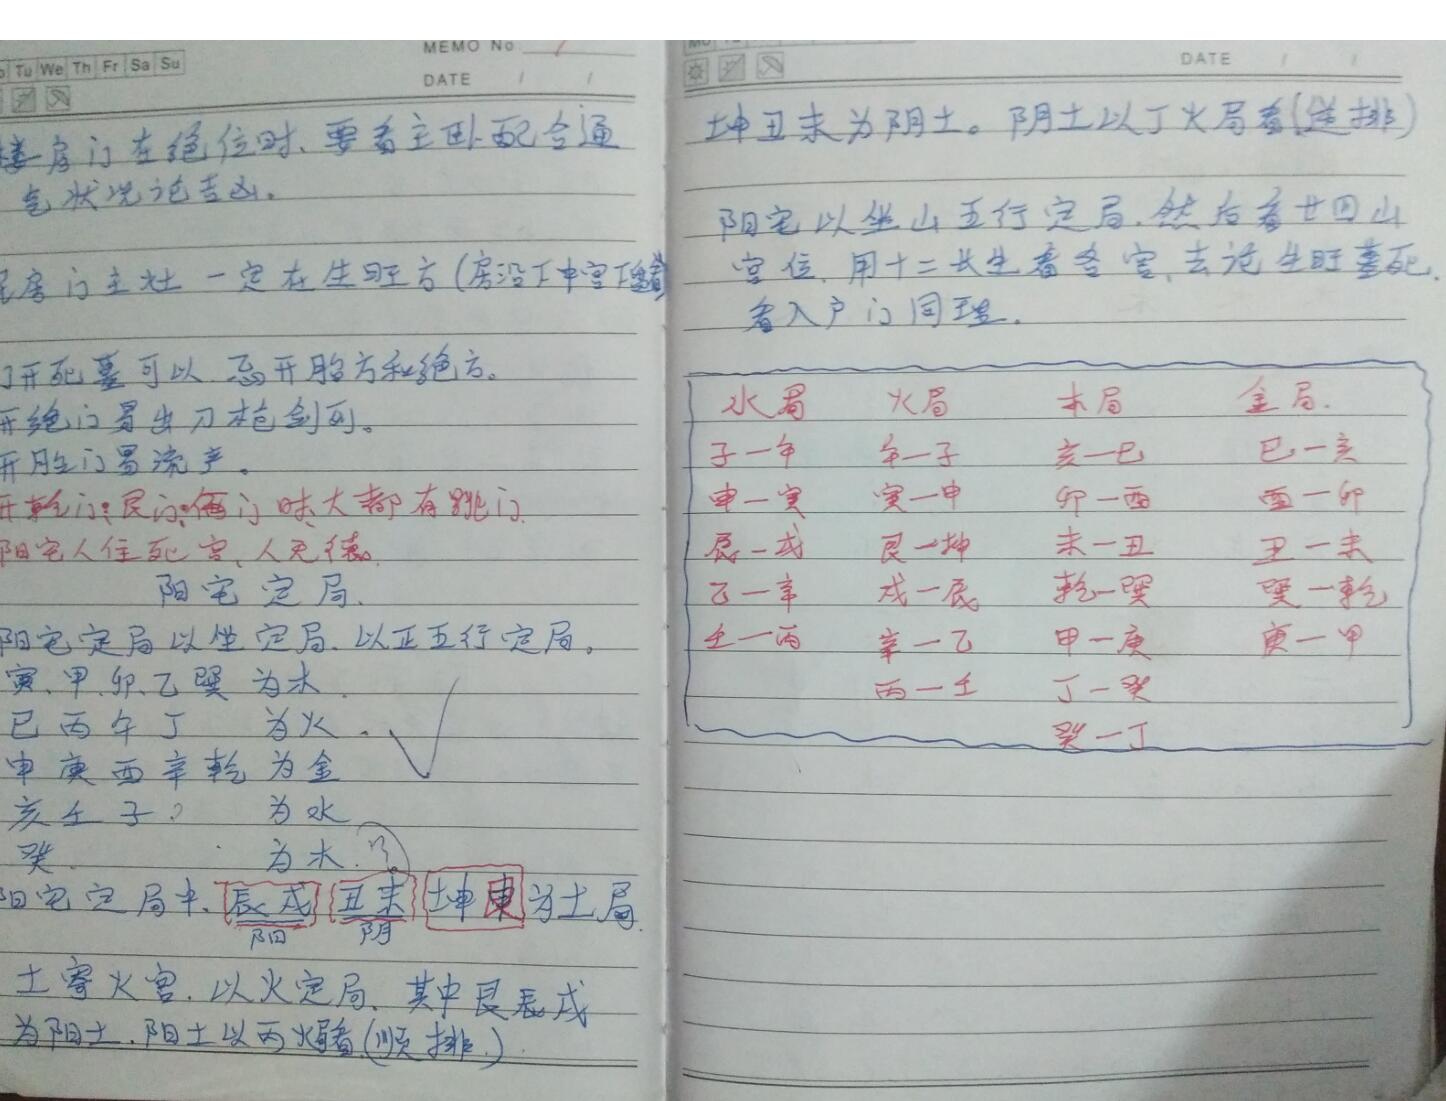 Tu We Th Fr Sa Su
MEMO No
DATE / /
楼房门在绝位时、要看主卧配合通
气状况论吉凶。
房门主灶一定在生旺方(房没下中宫下
门开死墓可以、忌开胎方和绝方。
开绝门易出刀枪剑
开胎门易流产。
开乾门、艮门、 门时、大都有跳门
阳宅人住死宫、人无德。
阳宅定局.
阳宅定局以坐定局、以正五行定局。
寅、甲、卯、乙巽 为木.
巳丙午丁 为火.
申庚酉辛乾 为金
亥壬子? 为水
癸. 为木.?
阳宅定局中、辰戌 丑未 坤 为土局.
阳 阴
土寄火宫、以火定局、其中艮辰戌
为阳土、阳土以丙火 看(顺排.)
DATE / /
坤丑未为阴土。阴土以丁火局看(逆排)
阳宅以坐山五行定局、然后看廿四山
宫位、用十二长生看各宫、去论生旺墓死.
看入户门同理.
水局 火局 木局 金局.
子一午 午一子 亥一巳 巳一亥
申一寅 寅一申 卯一酉 酉一卯
辰一戌 艮一坤 未一丑 丑一未
乙一辛 戌一辰 乾一巽 巽一乾
壬一丙 辛一乙 甲一庚 庚一甲
丙一壬 丁一癸
癸一丁